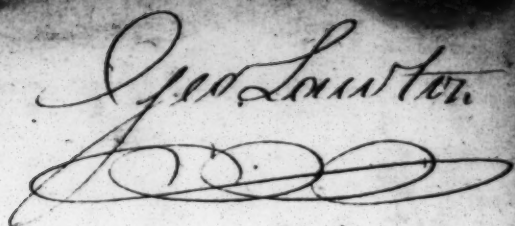 Geo. Lawton.